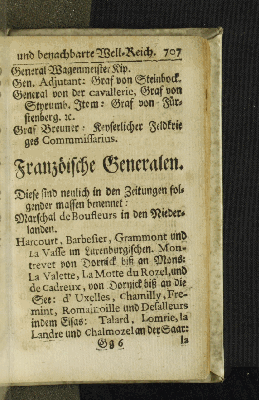 und benachbarte Welt-Reich. 707
General Wagenmeister Kip.
Gen. Adjutant: Graf von Steinbock.
General von der cavallerie, Graf von
Styrumb. Item: Graf von Für-
stenberg. ꝛc.
Graf Breuner: Keyserlicher Feldkrie
ges Commmissarius.
Französche Generalen.
Diese sind neulich in den Zeitungen fol-
gender massen benennet:
Marschal de Boufleurs in den Nieder-
landen.
Harcourt, Barbesier, Grammont und
La Vasse im Luxenburgischen. Mon-
trevet von Dornick biß an Mons:
La Valette, La Motte du Rozel, und
de Cadreux, von Dornick biß an die
See: d' Uxelles, Chamilly, Fre-
mint, Romainville und Desalleurs
indem Elsas: Talard, Lomrie, la
Landre und Chalmozel an der Saar:
Gg 6 la